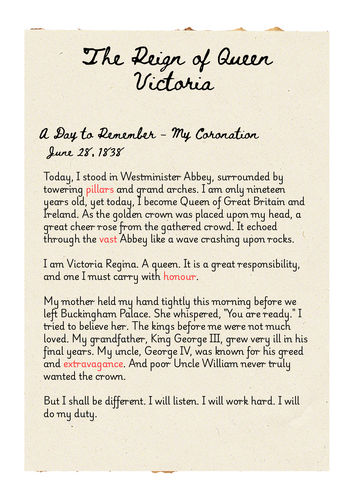 The Reign of Queen
Victoria
A Day to Remember – My Coronation
June 28, 1838
Today, I stood in Westminister Abbey, surrounded by
towering pillars and grand arches. I am only nineteen
years old, yet today, I become Queen of Great Britain and
Ireland. As the golden crown was placed upon my head, a
great cheer rose from the gathered crowd. It echoed
through the vast Abbey like a wave crashing upon rocks.
I am Victoria Regina. A queen. It is a great responsibility,
and one I must carry with honour.
My mother held my hand tightly this morning before we
left Buckingham Palace. She whispered, "You are ready." I
tried to believe her. The kings before me were not much
loved. My grandfather, King George III, grew very ill in his
final years. My uncle, George IV, was known for his greed
and extravagance. And poor Uncle William never truly
wanted the crown.
But I shall be different. I will listen. I will work hard. I will
do my duty.